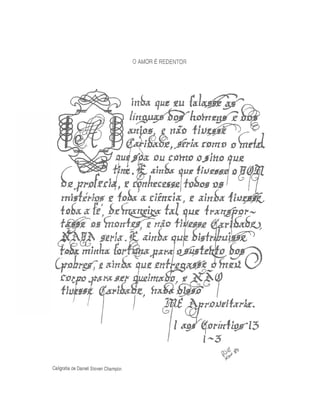 O AMOR É REDENTOR
Ainda que eu falasse as
línguas dos homens e dos
anjos, e não tivesse
Caridade, seria como o metal
que soa ou como o sino que
tine. E ainda que tivesse o DOM
de profecia, e conhecesse todos os
mistérios e toda a ciência, e ainda tivesse
toda a fé, de maneira tal que transpor~
tasse os montes, e não tivesse Caridade,
NADA seria. E ainda que distribuisse
toda minha fortuna para o sustento dos
pobres, e ainda que entregasse o meu
corpo para ser queimado, e NÃO
tivesse Caridade, nada disso
ME Aproveitaria.
1 aos Coríntios 13
1~3
Caligrafia de Daniell Steven Champion